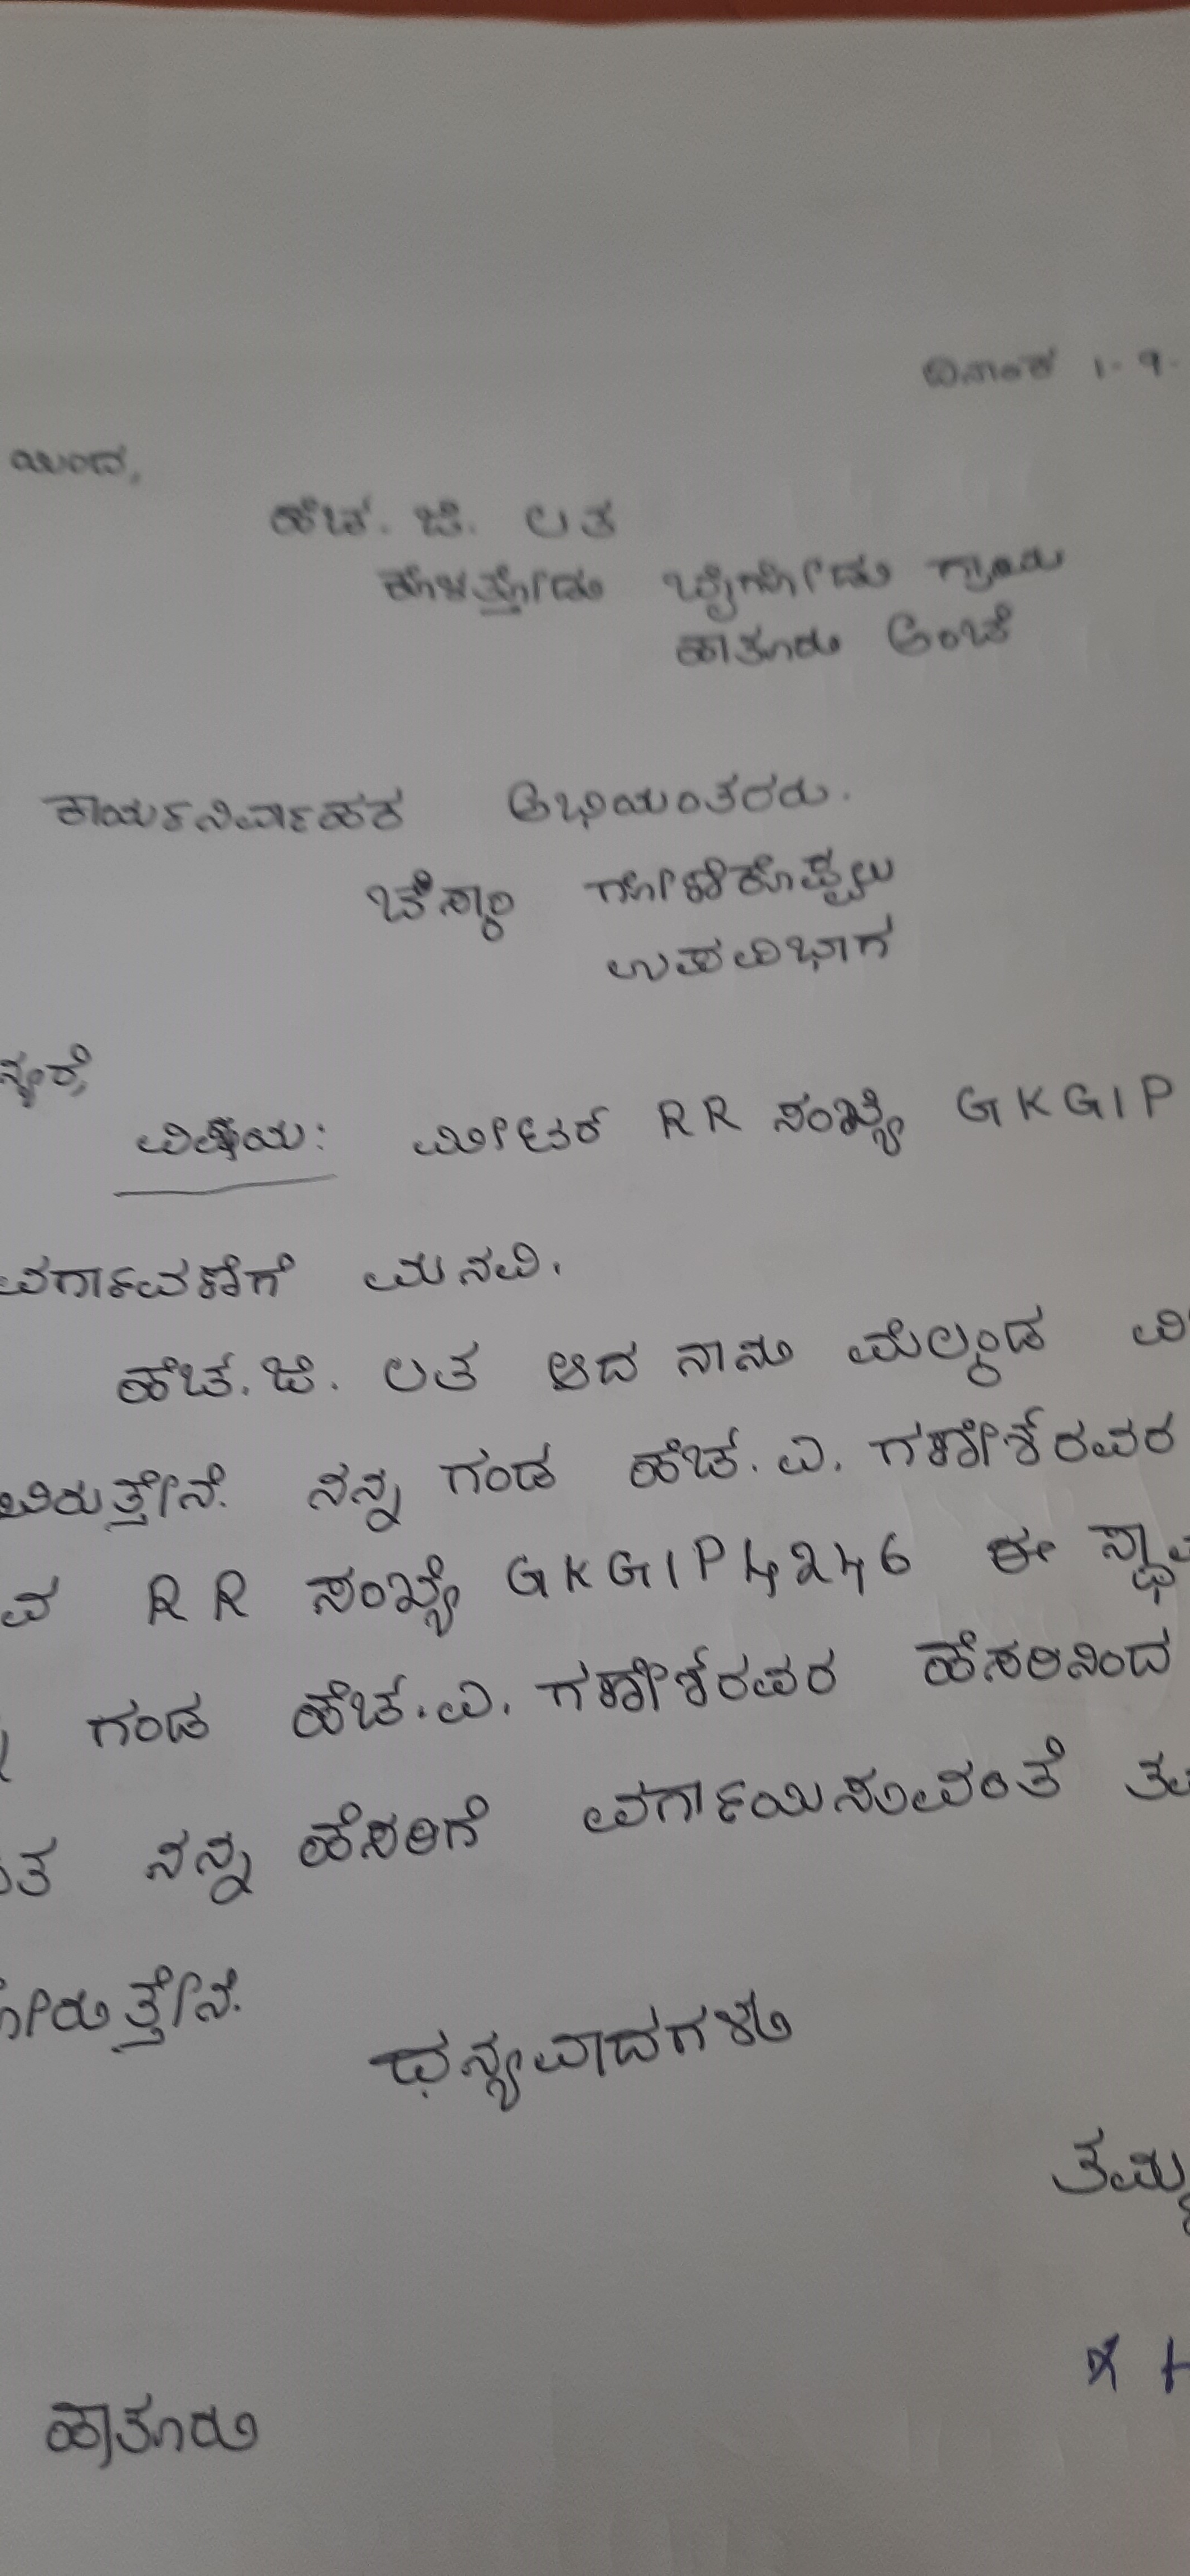 ದಿನಾಂಕ 1-9-
ಯಿಂದ,
ಹೆಚ್. ಜಿ. ಲತ
ಕೊಳತ್ತೋಡು ಬೈಗೋಡು ಗ್ರಾಮ
ಹಾತೂರು ಅಂಚೆ
ಕಾರ್ಯನಿರ್ವಾಹಕ ಅಭಿಯಂತರರು.
ಚೆಸ್ಕಾಂ ಗೋಣಿಕೊಪ್ಪಲು
ಉಪವಿಭಾಗ
ನ್ಯರೆ,
ವಿಷಯ: ಮೀಟರ್ RR ಸಂಖ್ಯೆ GKGIP
ವರ್ಗಾವಣೆಗೆ ಮನವಿ.
ಹೆಚ್.ಜಿ. ಲತ ಆದ ನಾನು ಮೆಲ್ಕಂಡ ವಿ
ವಿರುತ್ತೇನೆ. ನನ್ನ ಗಂಡ ಹೆಚ್.ವಿ. ಗಣೇಶ್‌ರವರ
ವ RR ಸಂಖ್ಯೆ GKGIP4246 ಈ ಸ್ಥಾ
ಗಂಡ ಹೆಚ್.ವಿ. ಗಣೇಶ್‌ರವರ ಹೆಸರಿನಿಂದ
ತ ನನ್ನ ಹೆಸರಿಗೆ ವರ್ಗಾಯಿಸುವಂತೆ ತ
ೋರುತ್ತೇನೆ.
ಧನ್ಯವಾದಗಳು
ತಮ್ಮ
x H
ಹಾತೂರು